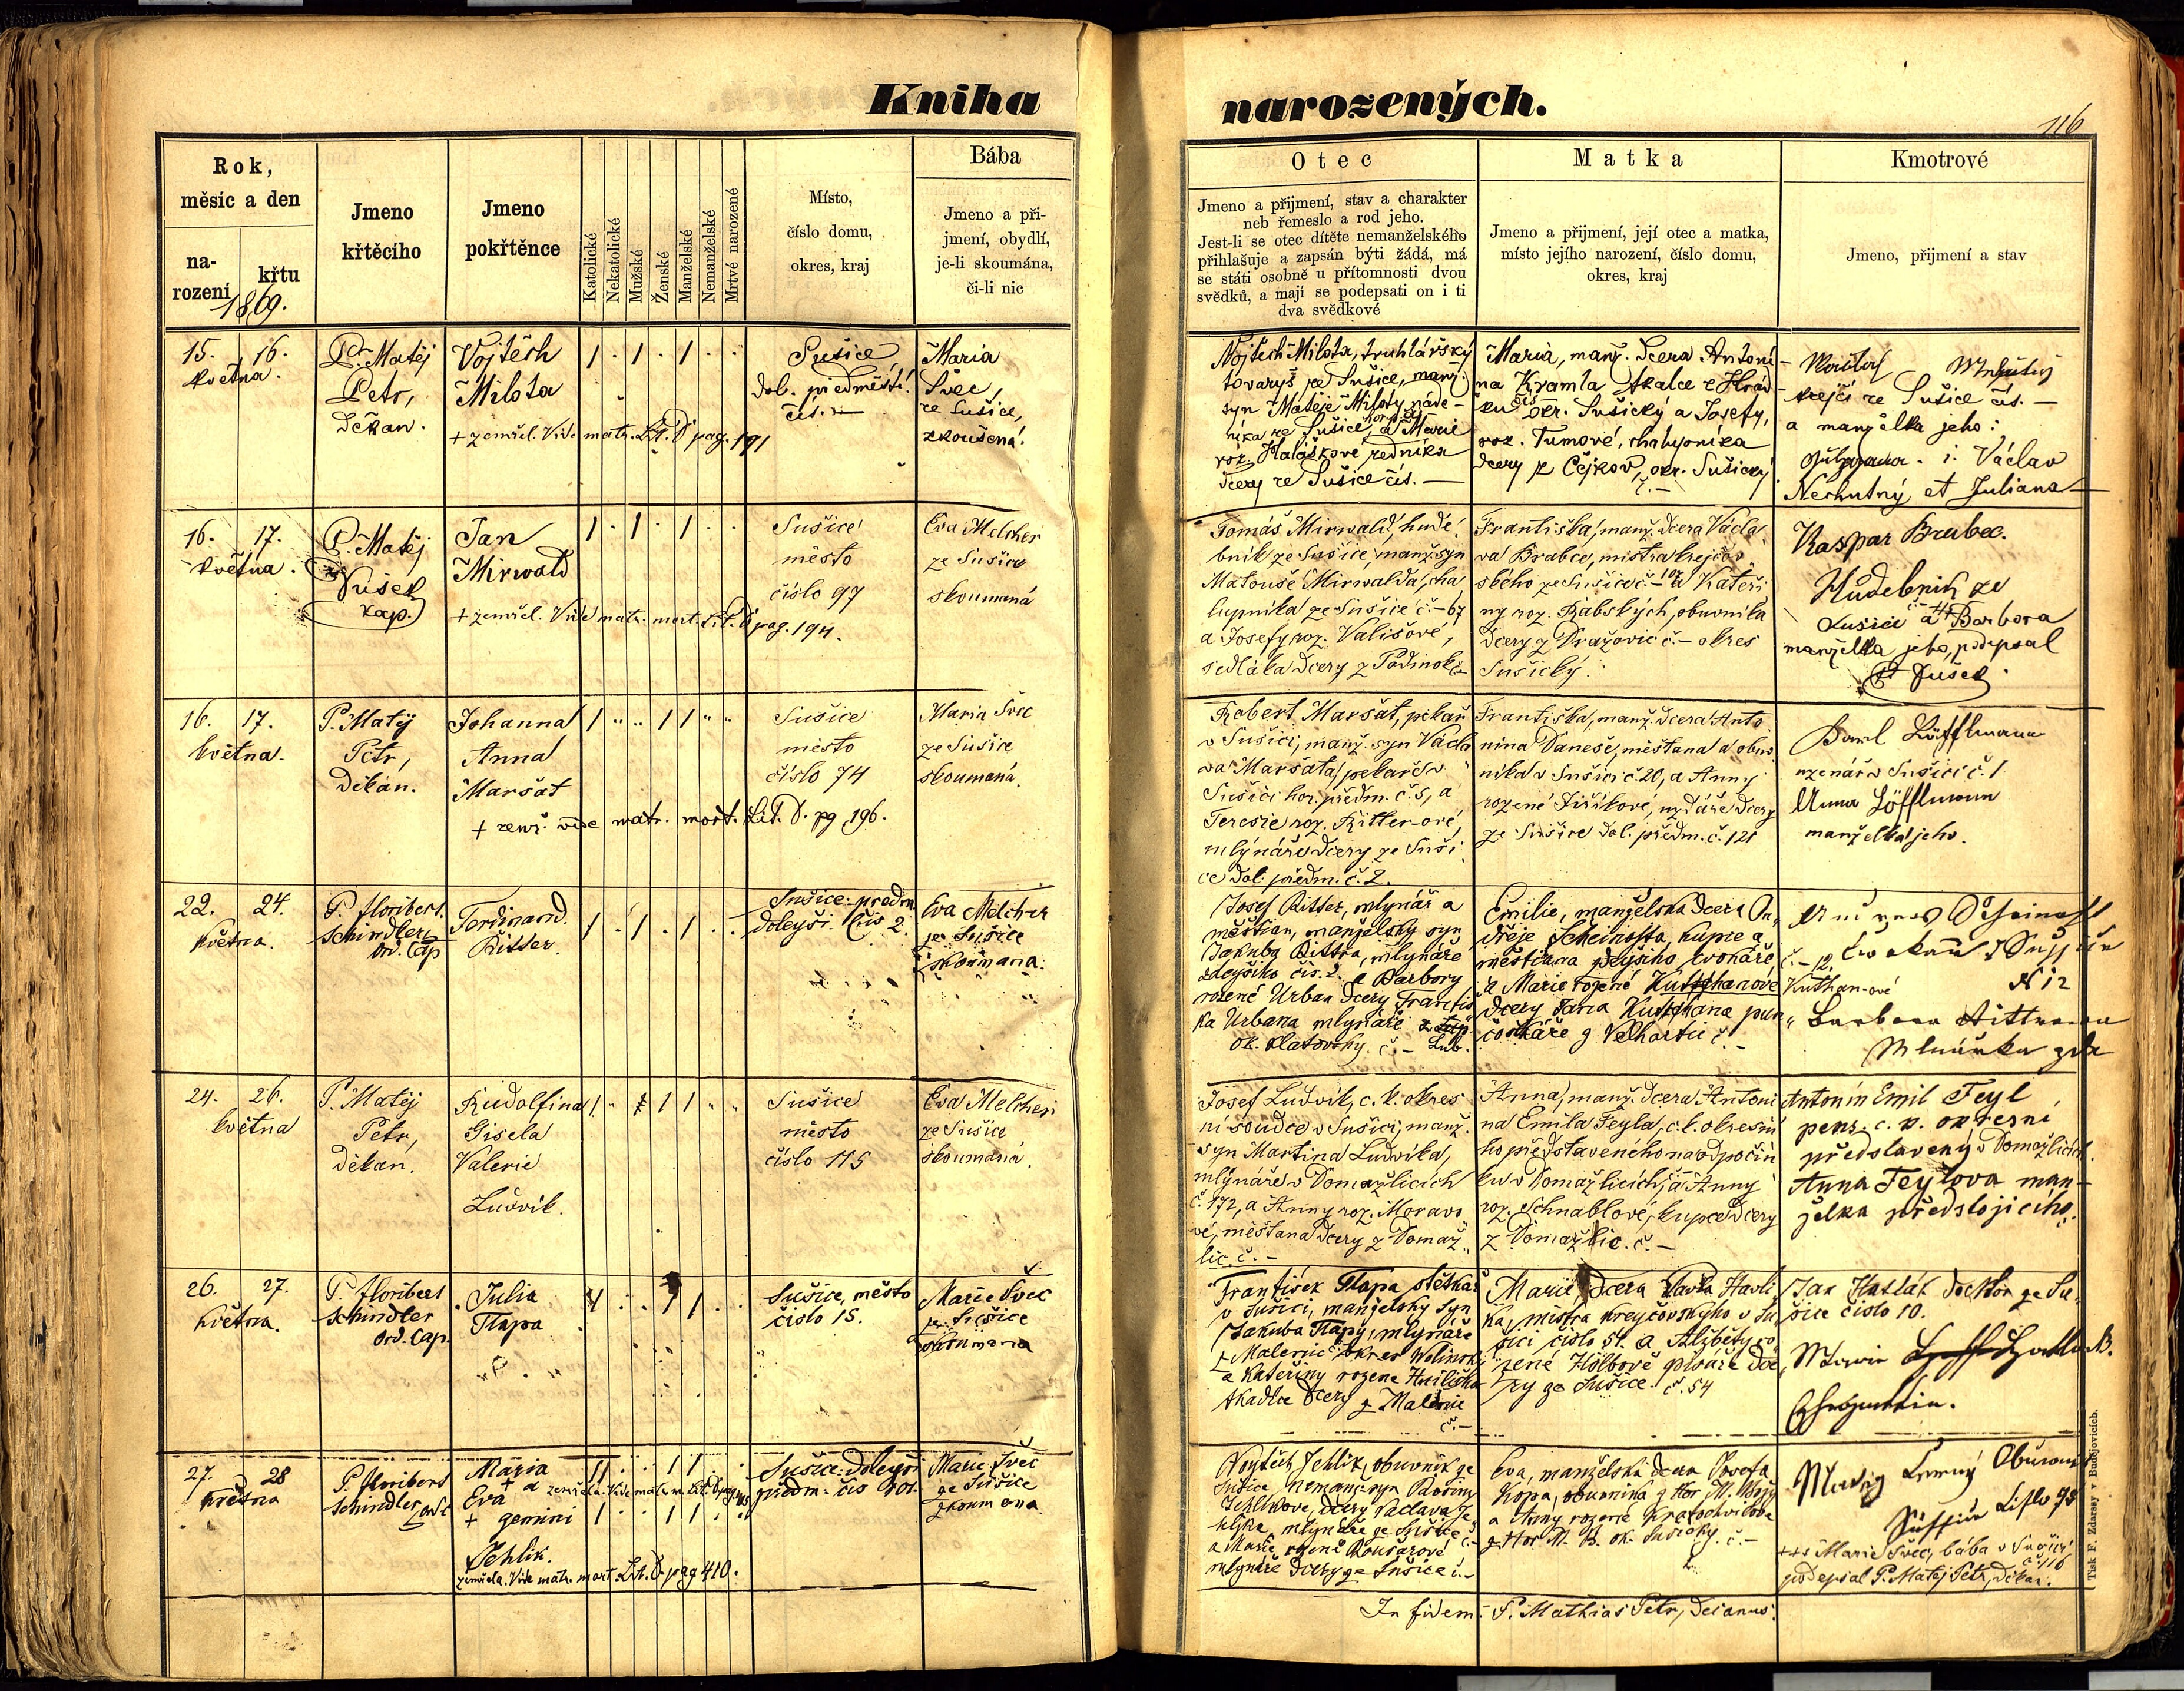 Kniha narozených.
116
Rok,
měsíc a den
na-
rození
křtu
1869.
Jmeno
křtěcího
Jmeno
pokřtěnce
Katolické
Nekatolické
Mužské
Ženské
Manželské
Nemanželské
Mrtvé narozené
Místo,
číslo domu,
okres, kraj
Bába
Jmeno a při-
jmení, obydlí,
je-li skoumána,
či-li nic
Otec
Jmeno a přijmení, stav a charakter
neb řemeslo a rod jeho.
Jest-li se otec dítěte nemanželského
přihlašuje a zapsán býti žádá, má
se státi osobně u přítomnosti dvou
svědků, a mají se podepsati on i ti
dva svědkové
Matka
Jmeno a přijmení, její otec a matka,
místo jejího narození, číslo domu,
okres, kraj
Kmotrové
Jmeno, přijmení a stav
15. 16.
května.
P. Matěj
Petr,
Děkan.
Vojtěch
Milota
+ zemřel. Vide matr. Lit. D pag. 191
Sušice
dol. předměstí
čís. —
Maria
Švec,
ze Sušice,
zkoušená.
Vojtěch Milota, truhlářský
tovaryš ze Sušice, manž.
syn Matěje Miloty, náde-
níka ze Sušice, a Marie
roz. Haláškové, ředníka
dcery ze Sušice čís. —
Maria, manž. dcera Antoní-
na Kramla tkalce z Hrád-
ku čís. okr. Sušický a Josefy,
roz. Tumové, chalupníka
dcery z Čejkov, okr. Sušický
č. —
krejčí ze Sušice čís. —
a manželka jeho:
i. Václav
Nechutný et Juliana
16. 17.
května.
P. Matěj
Dušek
kap.
Jan
Mirwald
+ zemřel. Vide matr. mort. Lit. D pag. 194.
Sušice
město
číslo 97
Eva Melcher
ze Sušice
skoumaná
Tomáš Mirwald, hude-
bník ze Sušice, manž. syn
Matouše Mirwalda, cha
lupníka ze Sušice č. – 67
a Josefy, roz. Vališové,
sedláka dcery z Podmokl č.
Františka, manž. dcera Václa-
va Brabce, mistra krejčov-
ského ze Sušice č. – a Kateři
ny roz. Rabských, obuvníka
dcery z Dražovic č. – okres
Sušický.
Kaspar Brabec.
Hudebník ze
Sušice a Barbora
manželka jeho, podepsal
P. Dušek
16. 17.
května.
P. Matěj
Petr,
děkan.
Johanna
Anna
Maršát
+ zemř. vide matr. mort. Lit. D. pg. 196.
Sušice
město
číslo 74
Maria Švec
ze Sušice
skoumaná.
Robert Maršát, pekař
v Sušici, manž. syn Václa
va Maršáta, pekaře v
Sušici hor. předm. č. 5, a
Teresie roz. Ritter-ové,
mlynáře dcery ze Suši
ce dol. předm. č. 2.
Františka, manž. dcera Anto
nína Daneše, měštana a obuv
níka v Sušici č. 20, a Anny
rozené Jiříkové, uzdáře dcery
ze Sušice dol. předm. č. 121
Karl Löfflmann
uzenář v Sušici č. 1
Anna Löfflmann
manželka jeho.
22. 24.
května.
P. Floribert
Schindler
ord. Cap
Ferdinand
Ritter.
Sušice - předm.
dolejší. čís 2.
Eva Melcher
ze Sušice
skoumana.
Josef Ritter, mlynář a
měštian, manželský syn
Jakuba Rittra, mlynáře
zdejšího čís. 2. a Barbory
rozené Urban dcery Františ
ka Urbana mlynáře z
ok. Klatovský č. – Lub.
Emilie, manželska dcera On-
dřeje Scheinosta, kupce a
měštiana zdejšího cvokáře
a Marie rozené Kutschanové
dcery Jana Kutschana pun
čoskáře z Velhartic č. –
č. – 12.
Kuthan-ové
N 12
24. 26.
května
P. Matěj
Petr,
děkan.
Rudolfina
Gisela
Valerie
Ludvík.
Sušice
město
číslo 115
Eva Melcher
ze Sušice
skoumaná.
Josef Ludvík, c. k. okres
ní soudce v Sušici, manž.
syn Martina Ludvíka,
mlynáře v Domažlicích
č. 172, a Anny roz. Moravo
vé, měštana dcery z Domaž
lic č. –
Anna, manž. dcera Antoní
na Emila Feyla, c. k. okresní
ho představeného na odpočin
ku v Domažlicích, a Anny
roz. Schnablové, kupce dcery
z Domažlic. č. –
Antonín Emil Feyl
pens. c. k. okresní
představený v Domažlicích.
Anna Feylova man-
želka předstojícího.
26. 27.
května.
P. Floribert
Schindler
ord. Cap.
Julia
Tlapa
Sušice, město
číslo 15.
Marie Švec
ze Sušice
skoumana
František Tlapa stětkař
v Sušici, manželský syn
Jakuba Tlapy, mlynáře
z Malenic okres Wolinský
a Kateřiny rozene
tkadlce dcery z Malenic
č. –
Marie dcera Pavla Havlí
ka, mistra krejčovskýho v Su
šici číslo 54. a Alžběty ro
zené Holbové dce
ry ze Sušice. č. 54
Jan Hatlák doktor ze Su-
šice číslo 10.
27. 28
května
P. Floribert
Schindler, ord C
Maria
+ a zemřela. Vide matr. m. Lit. D pag.
Eva
+ gemini
Jehlík.
zemřela. Vide matr. mort. Lit. D pag 410.
Sušice: dolejší
předm. čís 101.
Marie Švec
ze Sušice
zkoumana
Vojtěch Jehlík, obuvník ze
Sušice, Nemanž. syn Rosiny
Jehlikove, dcery Vaclava Je-
hlíka, mlynáře ze Sušice č.
a Marie, rozené Roušarové
mlynáře dcery ze Sušice č. –
Eva, manželská dcera Josefa
Kopa, obuvníka z Hor M. Boží
a Anny rozené Kratochvilove
z Hor M. B. ok. Sušický. č. –
Číslo 75
++ Marie Švec, bába v Sušici
č 116
podepsal P. Matěj Petr, děkan.
In fidem: P. Mathias Petr, decanus.
Tisk F. Zdarssy v Budějovicích.